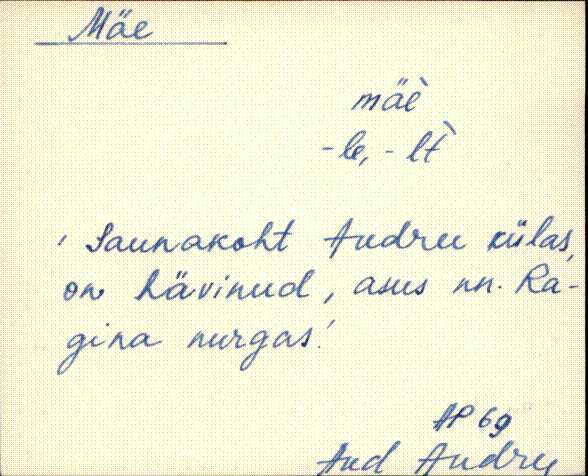 Mäe
mäè
-le, -lt̀
' Saunakoht Audru külas,
on hävinud, asus nn. Ra-
gina nurgas.'
AP 69
Aud Audru